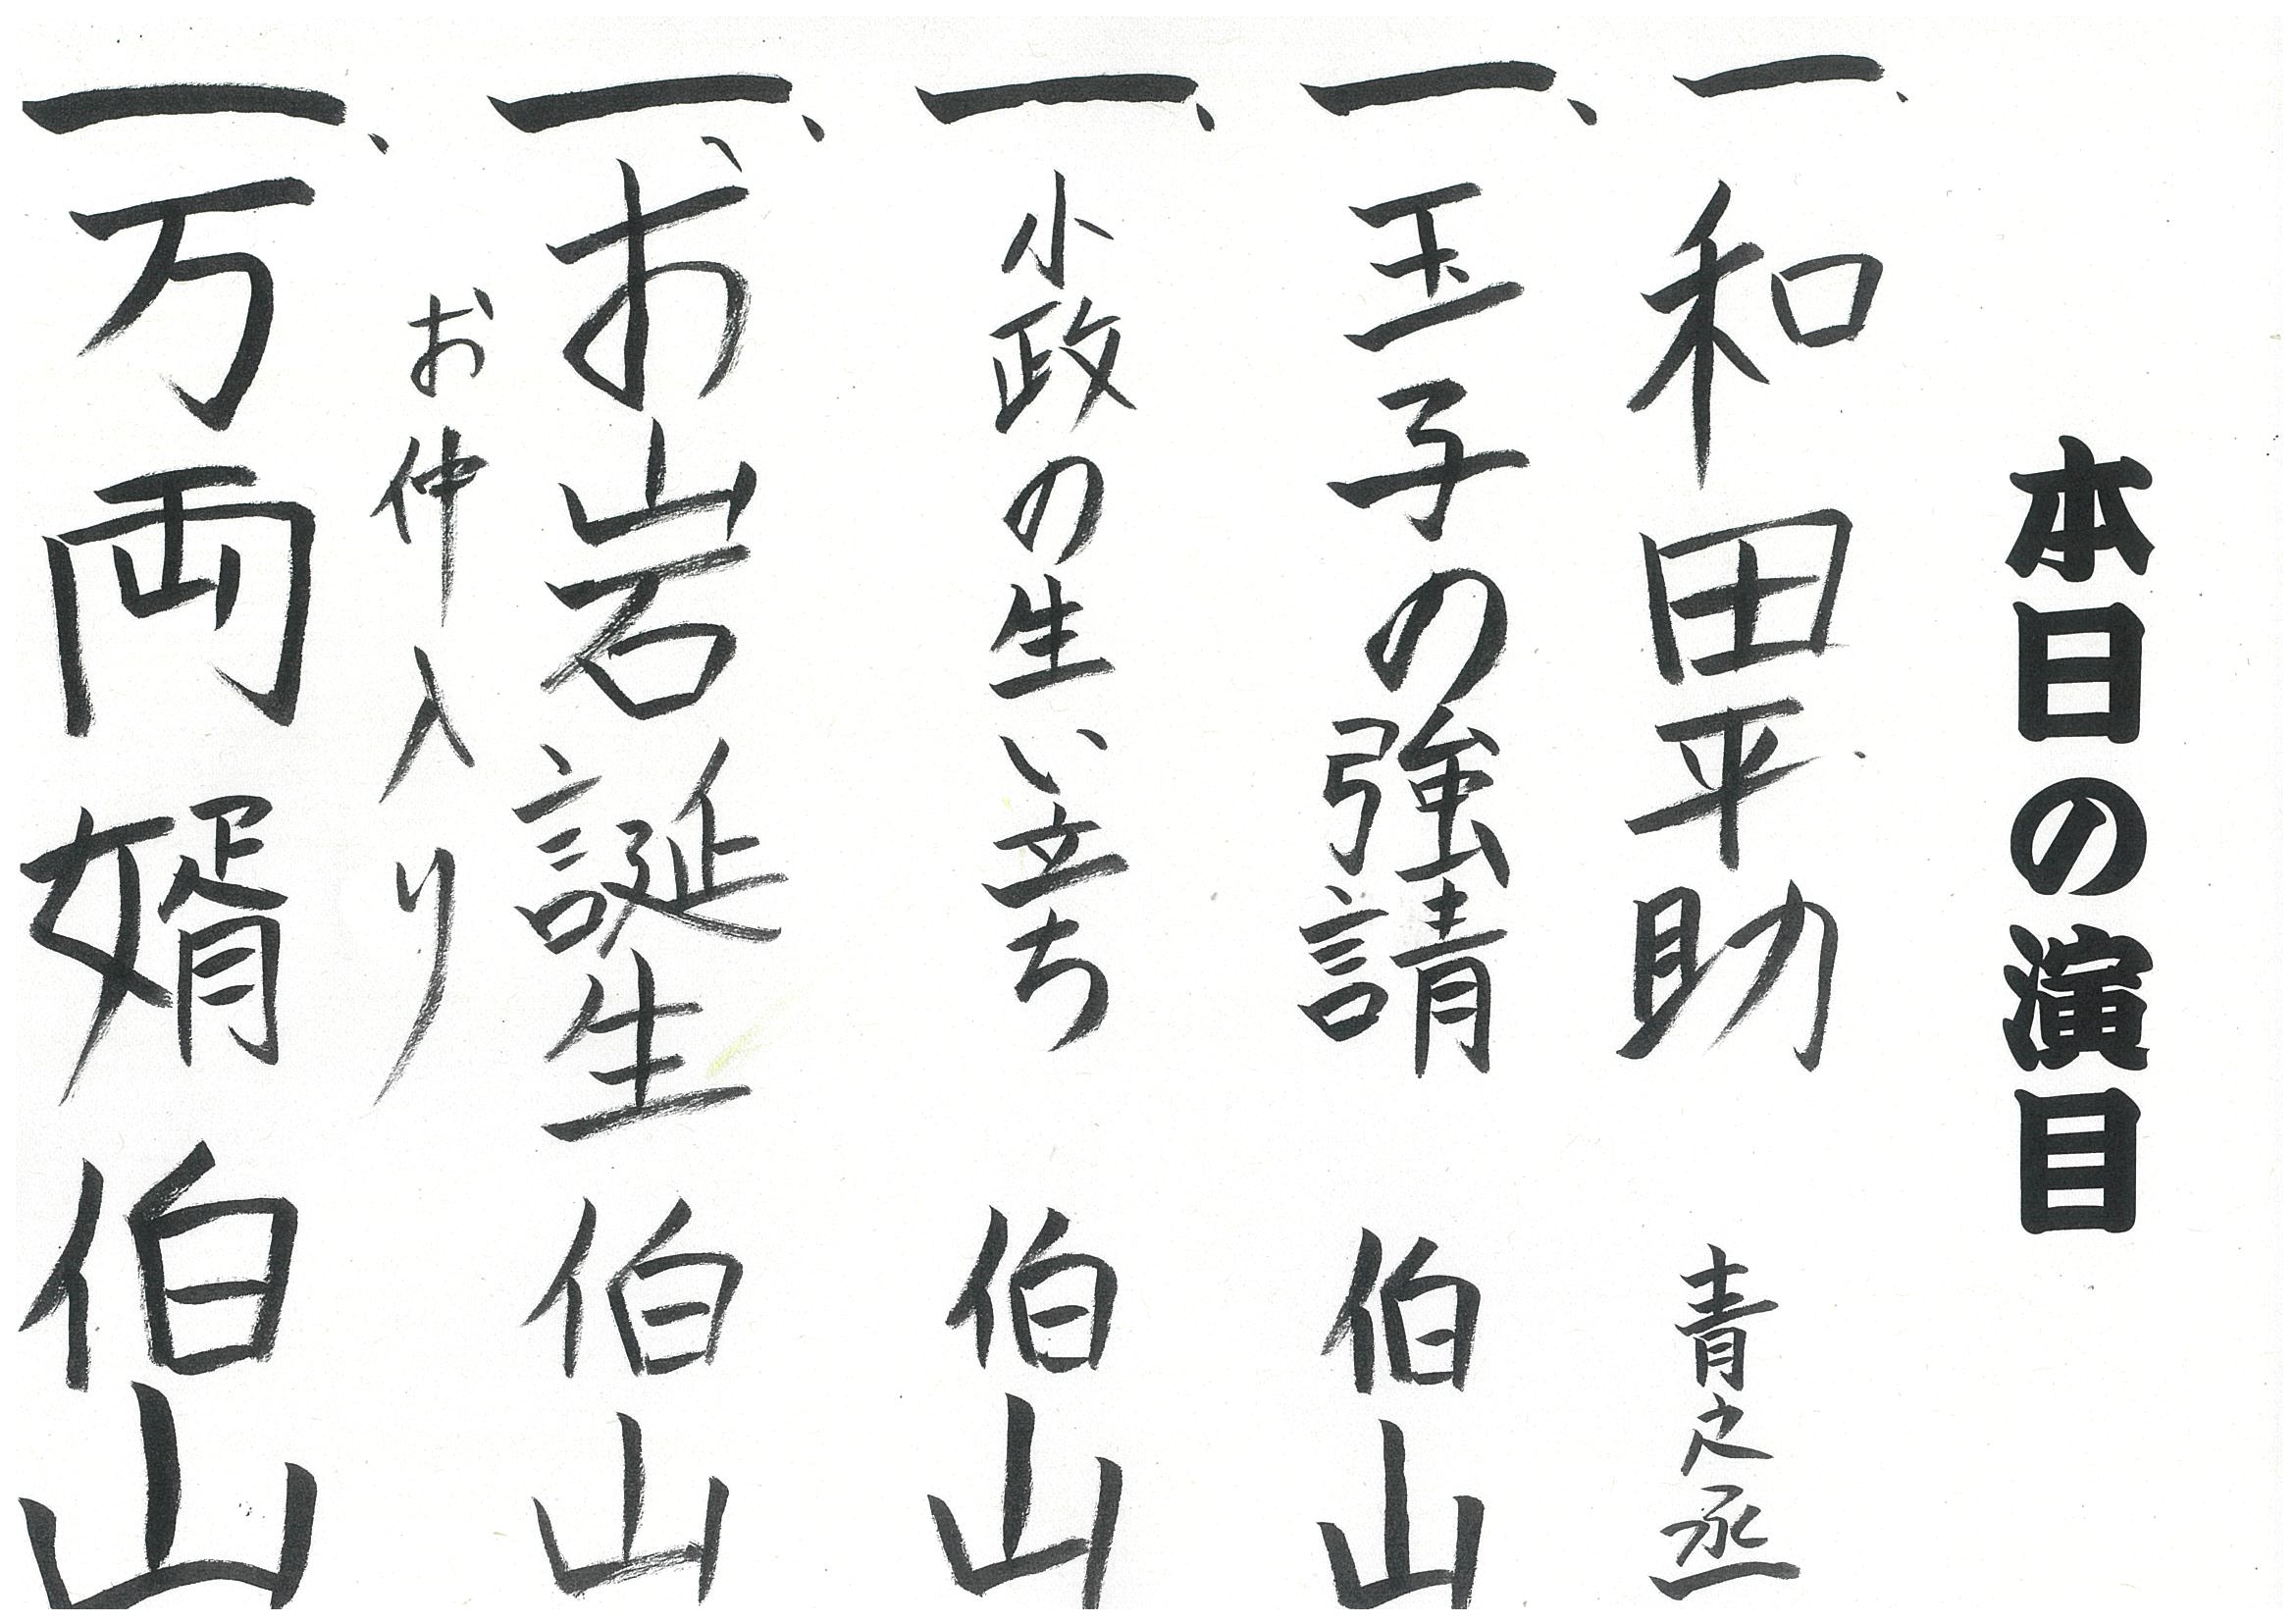 本日の演目
一、和田平助 青之丞
一、玉子の強請 伯山
一、小政の生い立ち 伯山
一、お岩誕生 伯山
お仲入り
一、万両婿 伯山